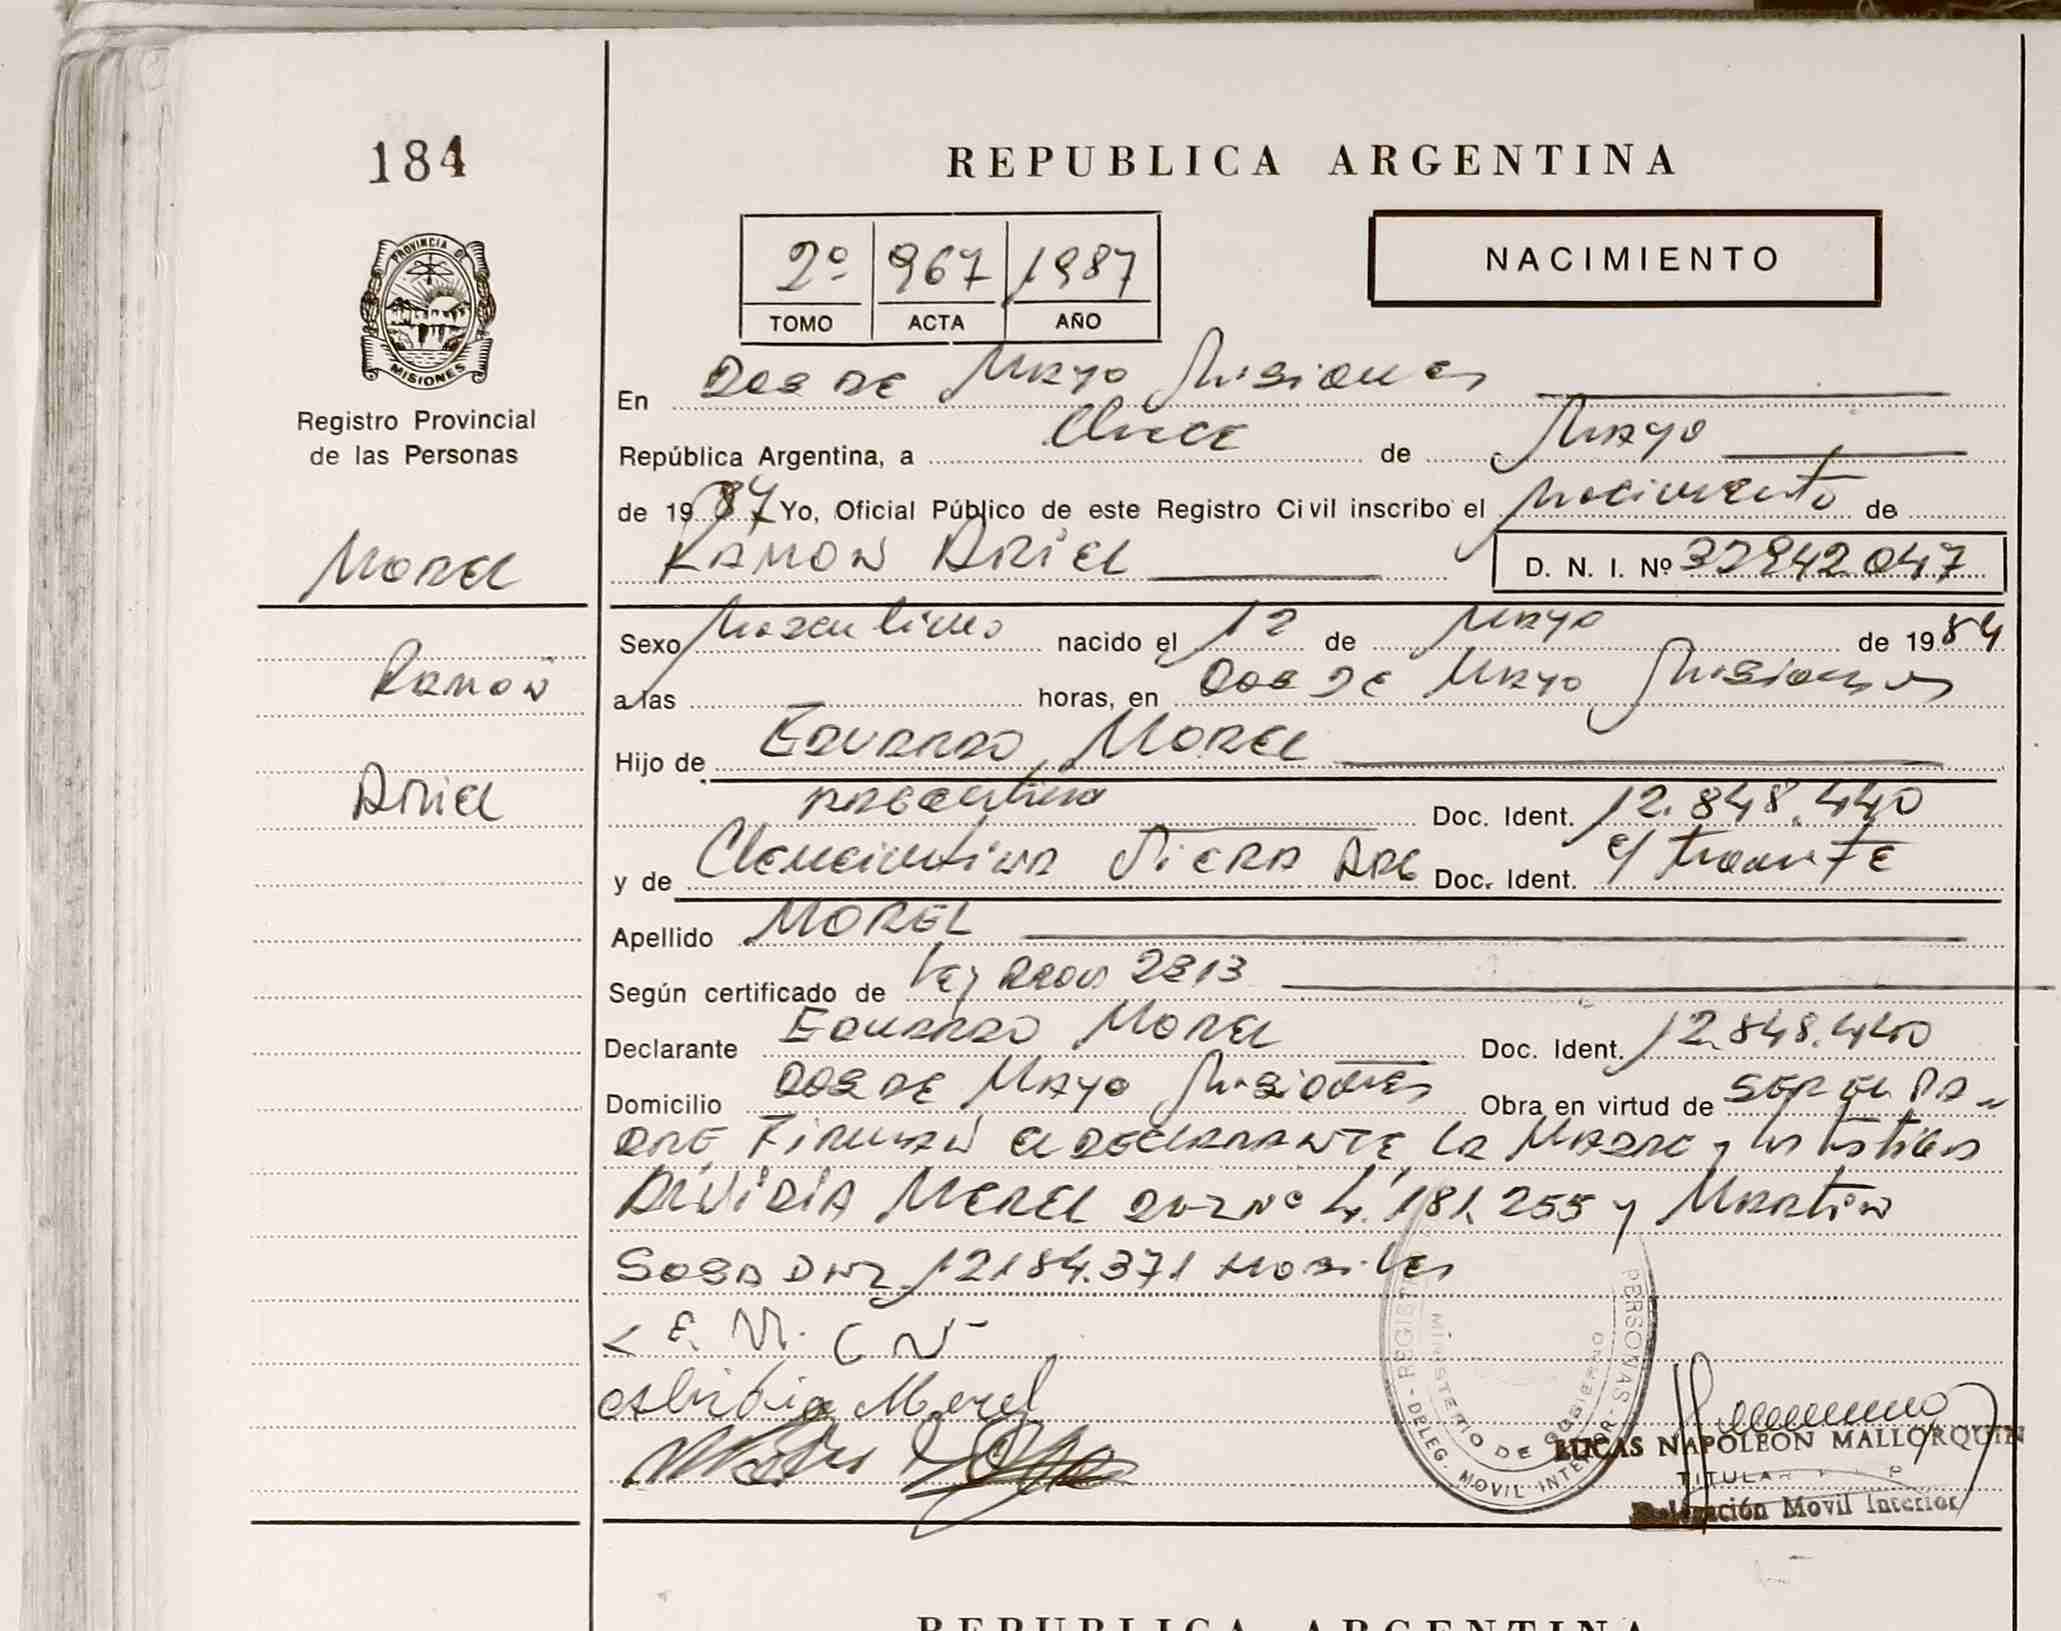 184
REPUBLICA ARGENTINA
2º 967 1987
TOMO ACTA AÑO
NACIMIENTO
PROVINCIA DE
MISIONES
Registro Provincial
de las Personas
Morel
Ramon
Ariel
En Dos de Mayo Misiones
República Argentina, a Once de Mayo
de 1987 Yo, Oficial Público de este Registro Civil inscribo el Nacimiento de
RAMON ARIEL D. N. I. Nº 32942047
Sexo Masculino nacido el 12 de Mayo de 1984
a las horas, en Dos de Mayo Misiones
Hijo de Eduardo Morel
Argentino Doc. Ident. 12.848.440
y de Clementina Viera Arg Doc. Ident. e/ tramite
Apellido MOREL
Según certificado de Ley 2813
Declarante Eduardo Morel Doc. Ident. 12.848.440
Domicilio Dos de Mayo Misiones Obra en virtud de ser el pa-
dre Firman el declarante la Madre y los testigos
Morel DNI Nº 4.181.255 y Martin
Sosa DNI 12184.371
E. M. C V
Morel
REGIST PERSONAS - DELEG. MOVIL INTERIOR -
MINISTERIO DE GOBIERNO
LUCAS NAPOLEON MALLORQUIN
TITULAR
Delegación Movil Interior
REPUBLICA ARGENTINA